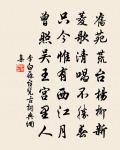 舊苑荒台楊柳新
菱歌清唱不勝春
只今惟有西江月
曾照吴王宫里人
李白蘇台覽古詞典網
集